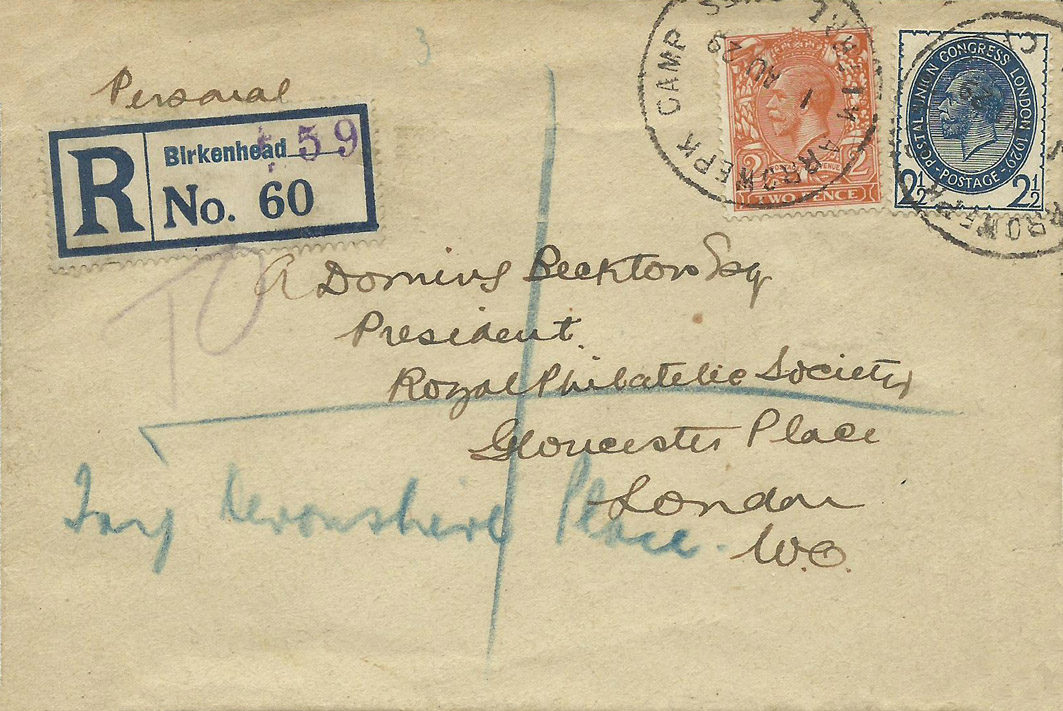 3
Personal
R
Birkenhead 59
No. 60
ARROWE PK CAMP
1 AU 29
TWO PENCE
2 2
POSTAL UNION CONGRESS LONDON 1929
POSTAGE
2½ 2½
TO
A Dorning Beckton Esq
President.
Royal Philatelic Society
Gloucester Place
London
W.C.
Try Devonshire Place.